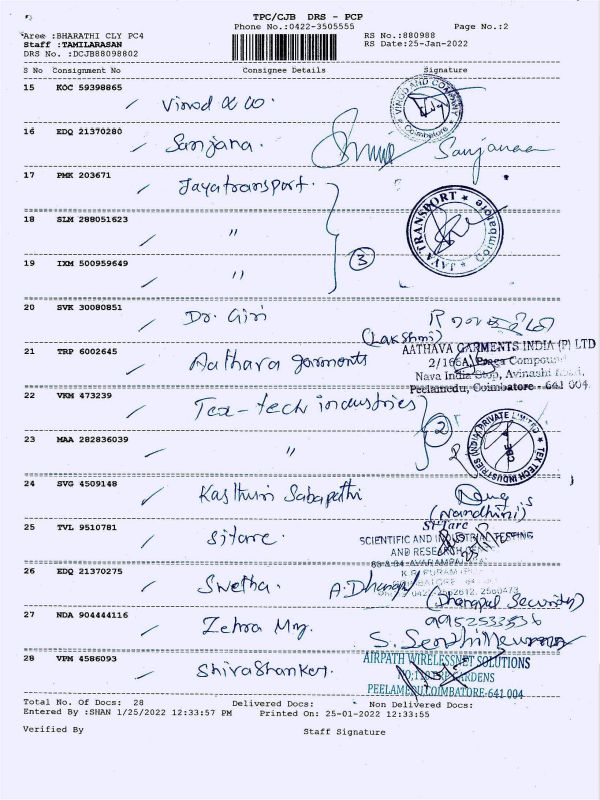 TPC/CJB DRS - PCP
Phone No.:0422-3505555
Page No.:2
Aree :BHARATHI CLY PC4
RS No.:880988
Staff :TAMILARASAN
RS Date:25-Jan-2022
DRS No. :DCJB88098802
S No Consignment No Consignee Details Signature
15 KOC 59398865
Vinod & Co.
VINOD AND COMPANY
Coimbatore
16 EDQ 21370280
Sanjana.
Sanjanaa
17 PMK 203671
Jayatransport.
JAYA TRANSPORT
Coimbatore
18 SLM 288051623
"
19 IXM 500959649
"
3
20 SVK 30080851
Dr. Giri
(Lakshmi)
21 TRP 6002645
Aathava garments
AATHAVA GARMENTS INDIA (P) LTD
2/166A, Compound
Nava India Stop, Avinashi Road,
Peelamedu, Coimbatore - 641 004
22 VKM 473239
Tex-tech industries
2
TEX TECH INDUSTRIES (INDIA) PRIVATE LIMITED
CBE
23 MAA 282836039
"
24 SVG 4509148
Kasthuri Sabapathi
(Nandhini)
25 TVL 9510781
sitarc.
SITarc
SCIENTIFIC AND INDUSTRIAL TESTING
AND RESEARCH
26 EDQ 21370275
Swetha.
A. Dhanapal
(Dhanapal Security)
27 NDA 904444116
Zehra Mny.
09952533536
28 VPM 4586093
Shivashanker.
AIRPATH WIRELESSNET SOLUTIONS
GARDENS
PEELAMEDU,COIMBATORE-641 004
Total No. Of Docs: 28 Delivered Docs: Non Delivered Docs:
Entered By :SHAN 1/25/2022 12:33:57 PM Printed On: 25-01-2022 12:33:55
Verified By
Staff Signature